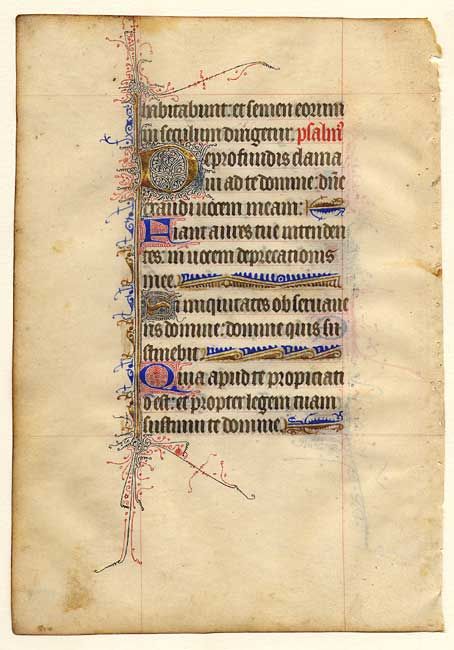 habitabunt: et semen eorum
in seculum dirigetur. psalm̄
De profundis clama
ui ad te domine: dn̄e
exaudi uocem meam:
Fiant aures tue intenden
tes: in uocem deprecationis
mee.
Si iniquitates obseruaue
ris domine: domine quis su
stinebit.
Quia apud te propiciati
o est: et propter legem tuam
sustinui te domine.